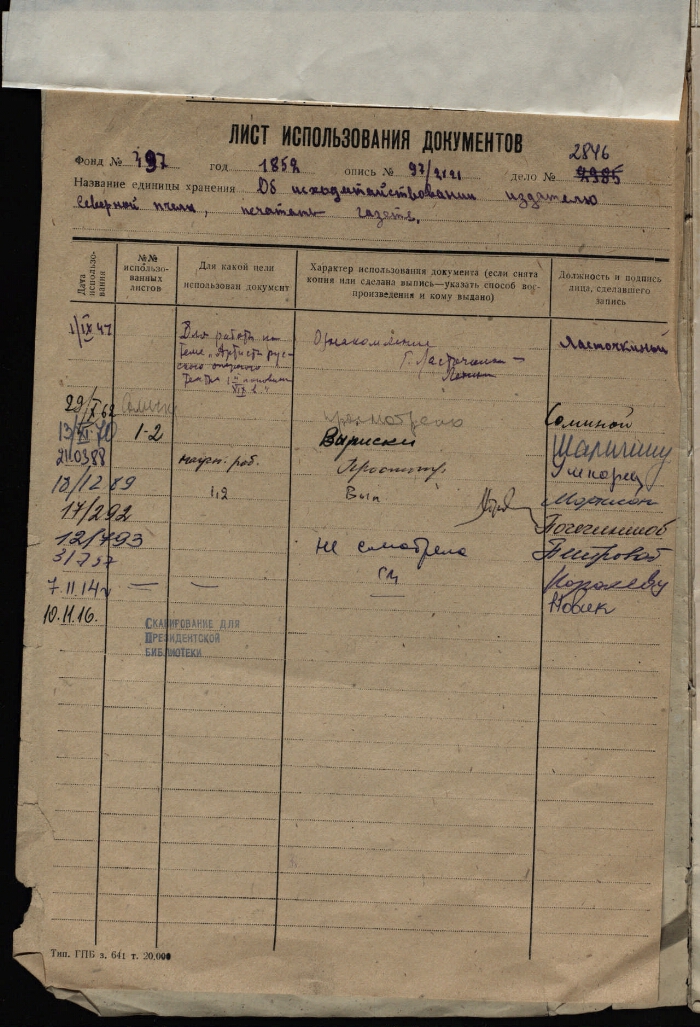 ЛИСТ ИСПОЛЬЗОВАНИЯ ДОКУМЕНТОВ
2846
Фонд № 497 год 1852 опись № 97/2121 дело № 2985
Название единицы хранения Об исходатайствовании издателю
Северной пчелы, печатать газету.
Дата использования
№№ использованных листов
Для какой цели
использован документ
Характер использования документа (если снята
копия или сделана выпись—указать способ вос-
произведения и кому выдано)
Должность и подпись
лица, сделавшего
запись
1/IX 47 Для работы на Ознакомление Ласточкиной
теме „Артисты рус-
ского оперного
театра
XIX в."
29/X 62 просмотрено Соминой
13/XI 70 1-2 Выписки
210388 научн. раб. Просмотр.
18/12 89 1,2 Вып
17/292
12/793 Не смотрела Петровой
31757
7.11.14г — — Королеву
10.11.16. Новик
СКАНИРОВАНИЕ ДЛЯ
ПРЕЗИДЕНТСКОЙ
БИБЛИОТЕКИ
Тип. ГПБ з. 641 т. 20.000